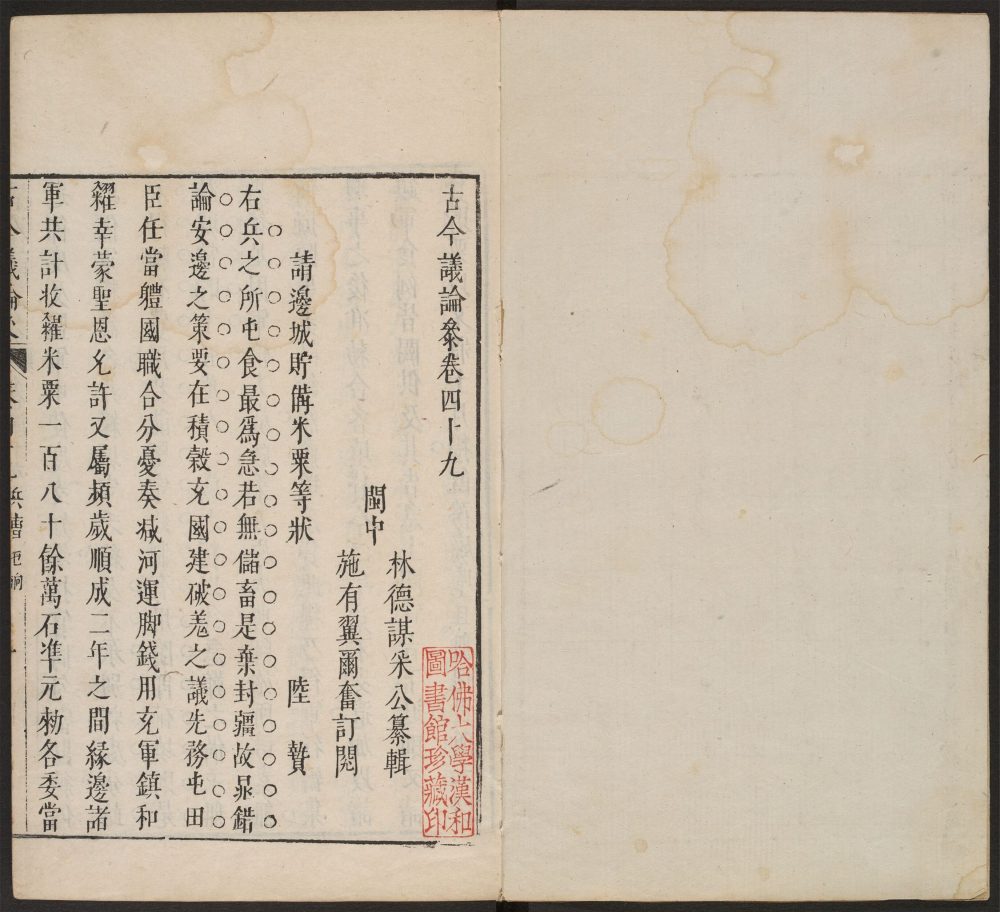 古今議論叅卷四十九
閩中
林德謀采公纂輯
施有翼爾奮訂閱
請邊城貯備米粟等狀 陸贄
右兵之所屯食最爲急若無儲畜是棄封疆故鼂錯
論安邊之策要在積穀充國建破羗之議先務屯田
臣任當軆國職合分憂奏减河運脚錢用充軍鎮和
糴幸蒙聖恩允許又屬頻歲順成二年之間緣邊諸
軍共計收糴米粟一百八十餘萬石準元勑各委當
哈佛大學漢和
圖書館珍藏印